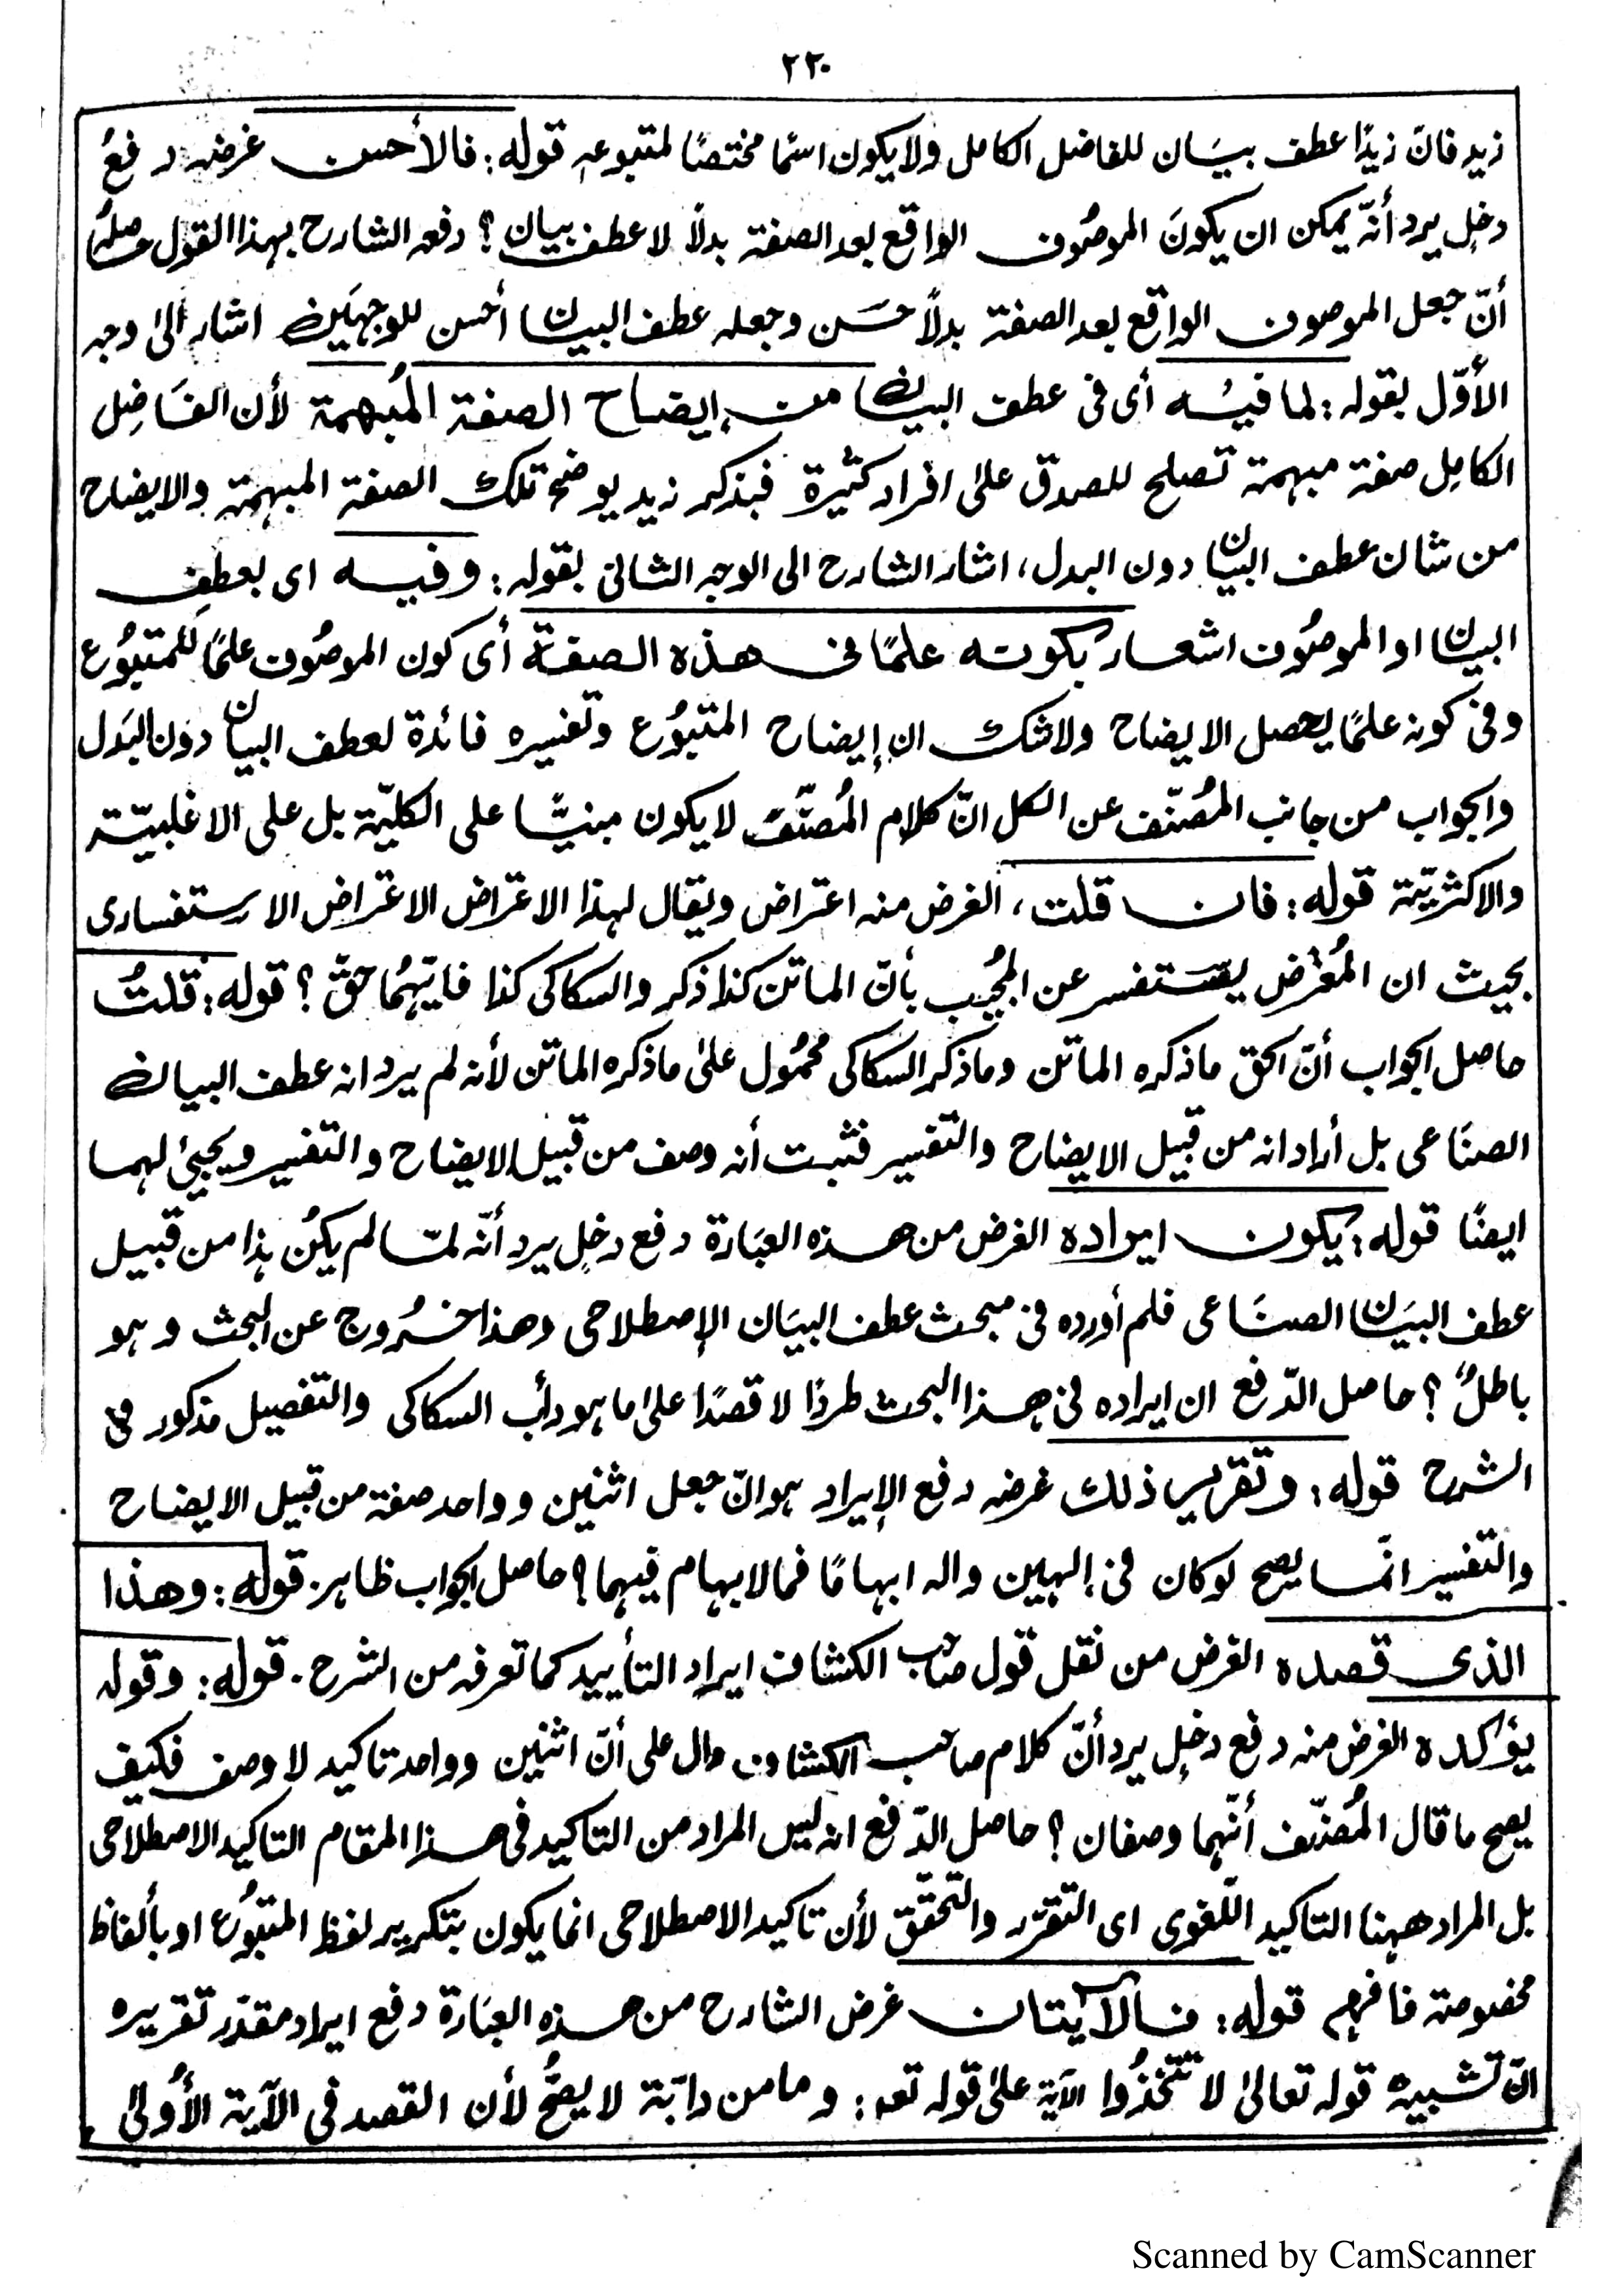 ٢٢٠
زيد فانّ زيدًا عطف بيَسان للفاضل الكامل ولا يكون اسمًا مختصًا لمتبوعه قوله: فالأحسن غرضه دفعُ
دخلٍ يرد أنّه يمكن ان يكونَ الموصُوف الواقع بعد الصفة بدلاً لا عطف بيان؟ دفعه الشارح بهذا القول حاصلهُ
أنّ جعل الموصوف الواقع بعد الصفة بدلاً حسَن وجعله عطف البيان أحسن للوجهَين اشار الىٰ وجه
الأوّل بقوله: لما فيْه أى فى عطف البيان من إيضاح الصفة المُبهمة لأن الفَاضِل
الكامِل صفة مبهمة تصلح للصدق علىٰ افراد كثيرة فبذكر زيد يوضح تلك الصفة المبهمة والايضاح
من شان عطف البيان دون البدل، اشار الشارح الى الوجه الثانى بقوله: وفيه اى بعطفِ
البيان او الموصُوف اشعار بكونه علمًا فى هذه الصفة أى كون الموصُوف علمًا للمتبُوع
وفى كونه علمًا يحصل الايضاح ولاشك ان إيضاح المتبُوع وتفسيره فائدة لعطف البيان دون البَدل
والجواب من جانب المُصنّف عن الكل انّ كلام المُصنّف لا يكون مبنيًّا على الكليّة بل على الاغلبيّة
والاكثريّة قوله: فان قلت، الغرض منه اعتراض ويقال لهذا الاعتراض الاعتراض الاستفسارى
بحيث ان المُعْترض يسَتفسر عن المجُيب بأنّ الماتن كذا ذكر والسكاكى كذا فايّهمُا حقّ؟ قوله: قلتُ
حاصل الجواب أنّ الحق ماذكره الماتن وماذكر السكاكى محمُول علىٰ ماذكره الماتن لأنه لم يرد انه عطف البيان
الصنَاعى بل أراد انه من قبيل الايضاح والتفسير فثبت أنه وصف من قبيل الايضاح والتفسير ويجيئ لهما
ايضًا قوله: يكون ايراده الغرض من هذه العبَارة دفع دخلٍ يرد أنّه لمّا لم يكُن هذا من قبيل
عطف البيَان الصنَاعى فلم أورده فى مبحث عطف البيَان الإصطلاحى وهذا خرُوج عن البحث وهو
باطلٌ؟ حاصل الدّفع ان ايراده فى هذا البحث طردًا لا قصدًا علىٰ ما هو دأب السكاكى والتفصيل مذكور فى
الشرح قوله: وتقرير ذلك غرضه دفع الإيراد هو انّ جعل اثنين وواحد صفة من قبيل الايضاح
والتفسير انّما يصح لو كان فى إلهين واله ابهامًا فمالابهام فيهما؟ حاصل الجواب ظاهر. قوله: وهذا
الذى قصده الغرض من نقل قول صاحب الكشاف ايراد التأييد كما تعرفه من الشرح. قوله: وقوله
يؤكده الغرض منه دفع دخلٍ يرد أنّ كلام صاحب الكشاف دال على أنّ اثنين وواحد تاكيد لا وصف فكيف
يصح ما قال المُصنّف أنّهما وصفان؟ حاصل الدّفع انه ليس المراد من التاكيد فى هذا المقام التاكيد الاصطلاحى
بل المراد ههنا التاكيد اللّغوى اى التقرّر والتحقّق لأن تاكيد الاصطلاحى انما يكون بتكرير لفظ المتبُوع او بألفاظ
مخصوصة فافهم قوله: فالآيتان غرض الشارح من هذه العبَارة دفع ايراد مقدّر تقريره
انّ تشبيه قوله تعالىٰ لا تتّخذُوا الآية علىٰ قوله تعـ: وما من دابّة لا يصحُّ لأن القصد فى الآية الأُولىٰ
Scanned by CamScanner